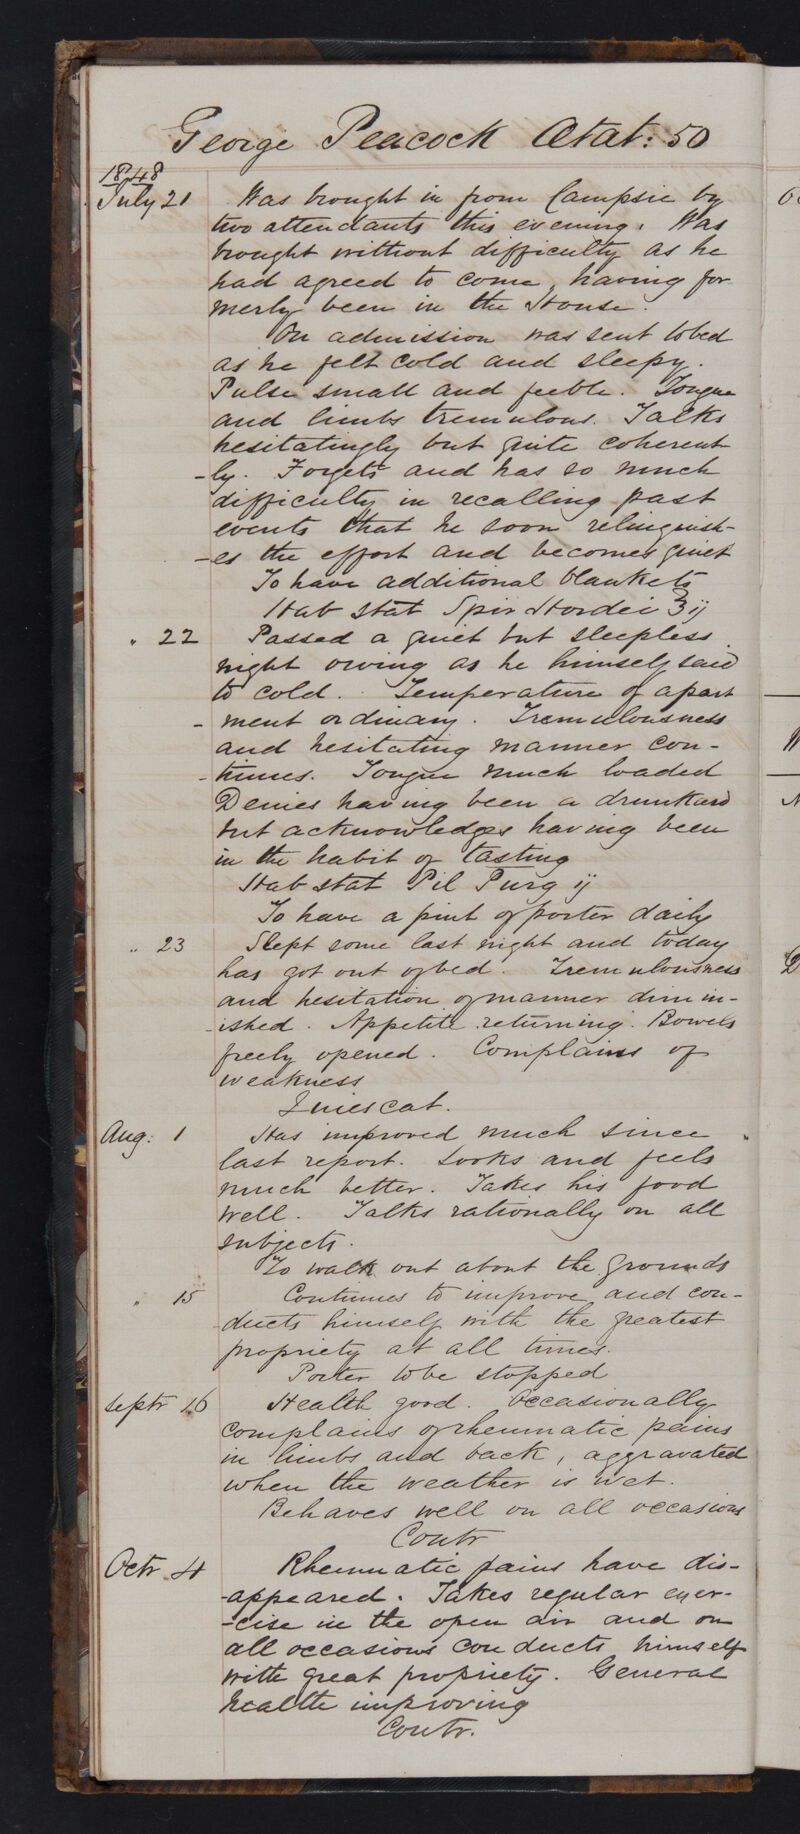 George Peacock Ætat: 50
1848
July 21 Was brought in from Campsie by
two attendants this evening. Was
brought without difficulty as he
had agreed to come, having for
merly been in the House.
On admission was sent to bed
as he felt cold and sleepy.
Pulse small and feeble. Tongue
and limbs tremulous. Talks
hesitatingly but quite coherent
-ly. Forgets and has so much
difficulty in recalling past
events that he soon relinquish-
-es the effort and becomes quiet
To have additional blankets
Hab stat Spir Hordei ℥ij
" 22 Passed a quiet but sleepless
night owing as he himself said
to cold. Temperature of apart
-ment ordinary. Tremulousness
and hesitating manner con-
-tinues. Tongue much loaded
Denies having been a drunkard
but acknowledges having been
in the habit of tasting
Hab stat Pil Purg ij
To have a pint of porter daily
" 23 Slept some last night and today
has got out of bed. Tremulousness
and hesitation of manner dimin-
-ished. Appetite returning. Bowels
freely opened. Complains of
weakness
Quiescat.
Aug: 1 Has improved much since
last report. Looks and feels
much better. Takes his food
well. Talks rationally on all
subjects.
To walk out about the grounds
" 15 Continues to improve and con-
-ducts himself with the greatest
propriety at all times.
Porter to be stopped
Septr 16 Health good. Occasionally
complains of rheumatic pains
in limbs and back, aggravated
when the weather is wet.
Behaves well on all occasions
Contr
Octr 4 Rheumatic pains have dis-
-appeared. Takes regular exer-
-cise in the open air and on
all occasions conducts himself
with great propriety. General
health improving
Contr.